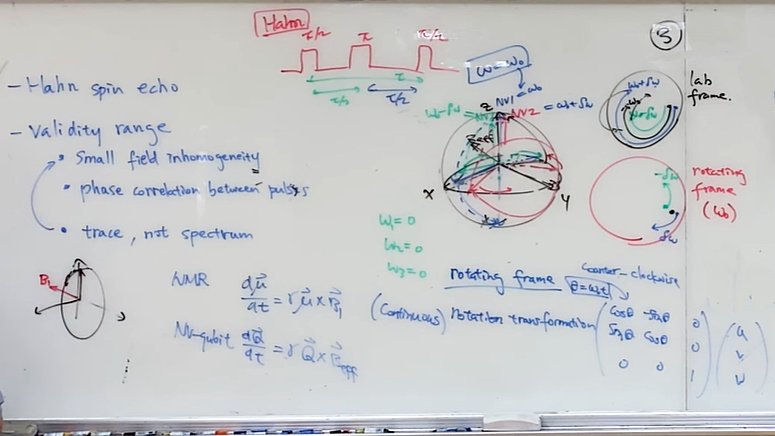 Hahn
π/2 π π/2
τ
τ/2 τ/2
ω = ω₀
3
- Hahn spin echo
- Validity range
• Small field inhomogeneity
• phase correlation between pulses
• trace, not spectrum
ω₀
Z NV1
ω₀-δω NV2 = ω₀+δω
X
Y
ω₀+δω
ω₀
ω₀-δω
lab
frame.
-δω
δω
rotating
frame
(ω₀)
ω₁= 0
ω₂= 0
ω₃= 0
B₁
NMR dμ⃗/dt = γ μ⃗ × B⃗₁
NV-qubit dQ⃗/dt = γ Q⃗ × B⃗eff
rotating frame
counter-clockwise
θ = ω₀t
(Continuous) rotation transformation
cosθ -sinθ 0
sinθ cosθ 0
0 0 1
u
v
w